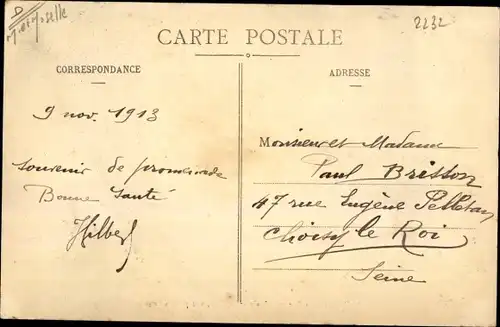 D
M.-et-Moselle
2232
CARTE POSTALE
CORRESPONDANCE
ADRESSE
9 nov. 1913
souvenir de promenade
Bonne santé
Hilbert
Monsieur et Madame
Paul Brisson
47 rue Eugène Pelletan
Choisy le Roi
Seine